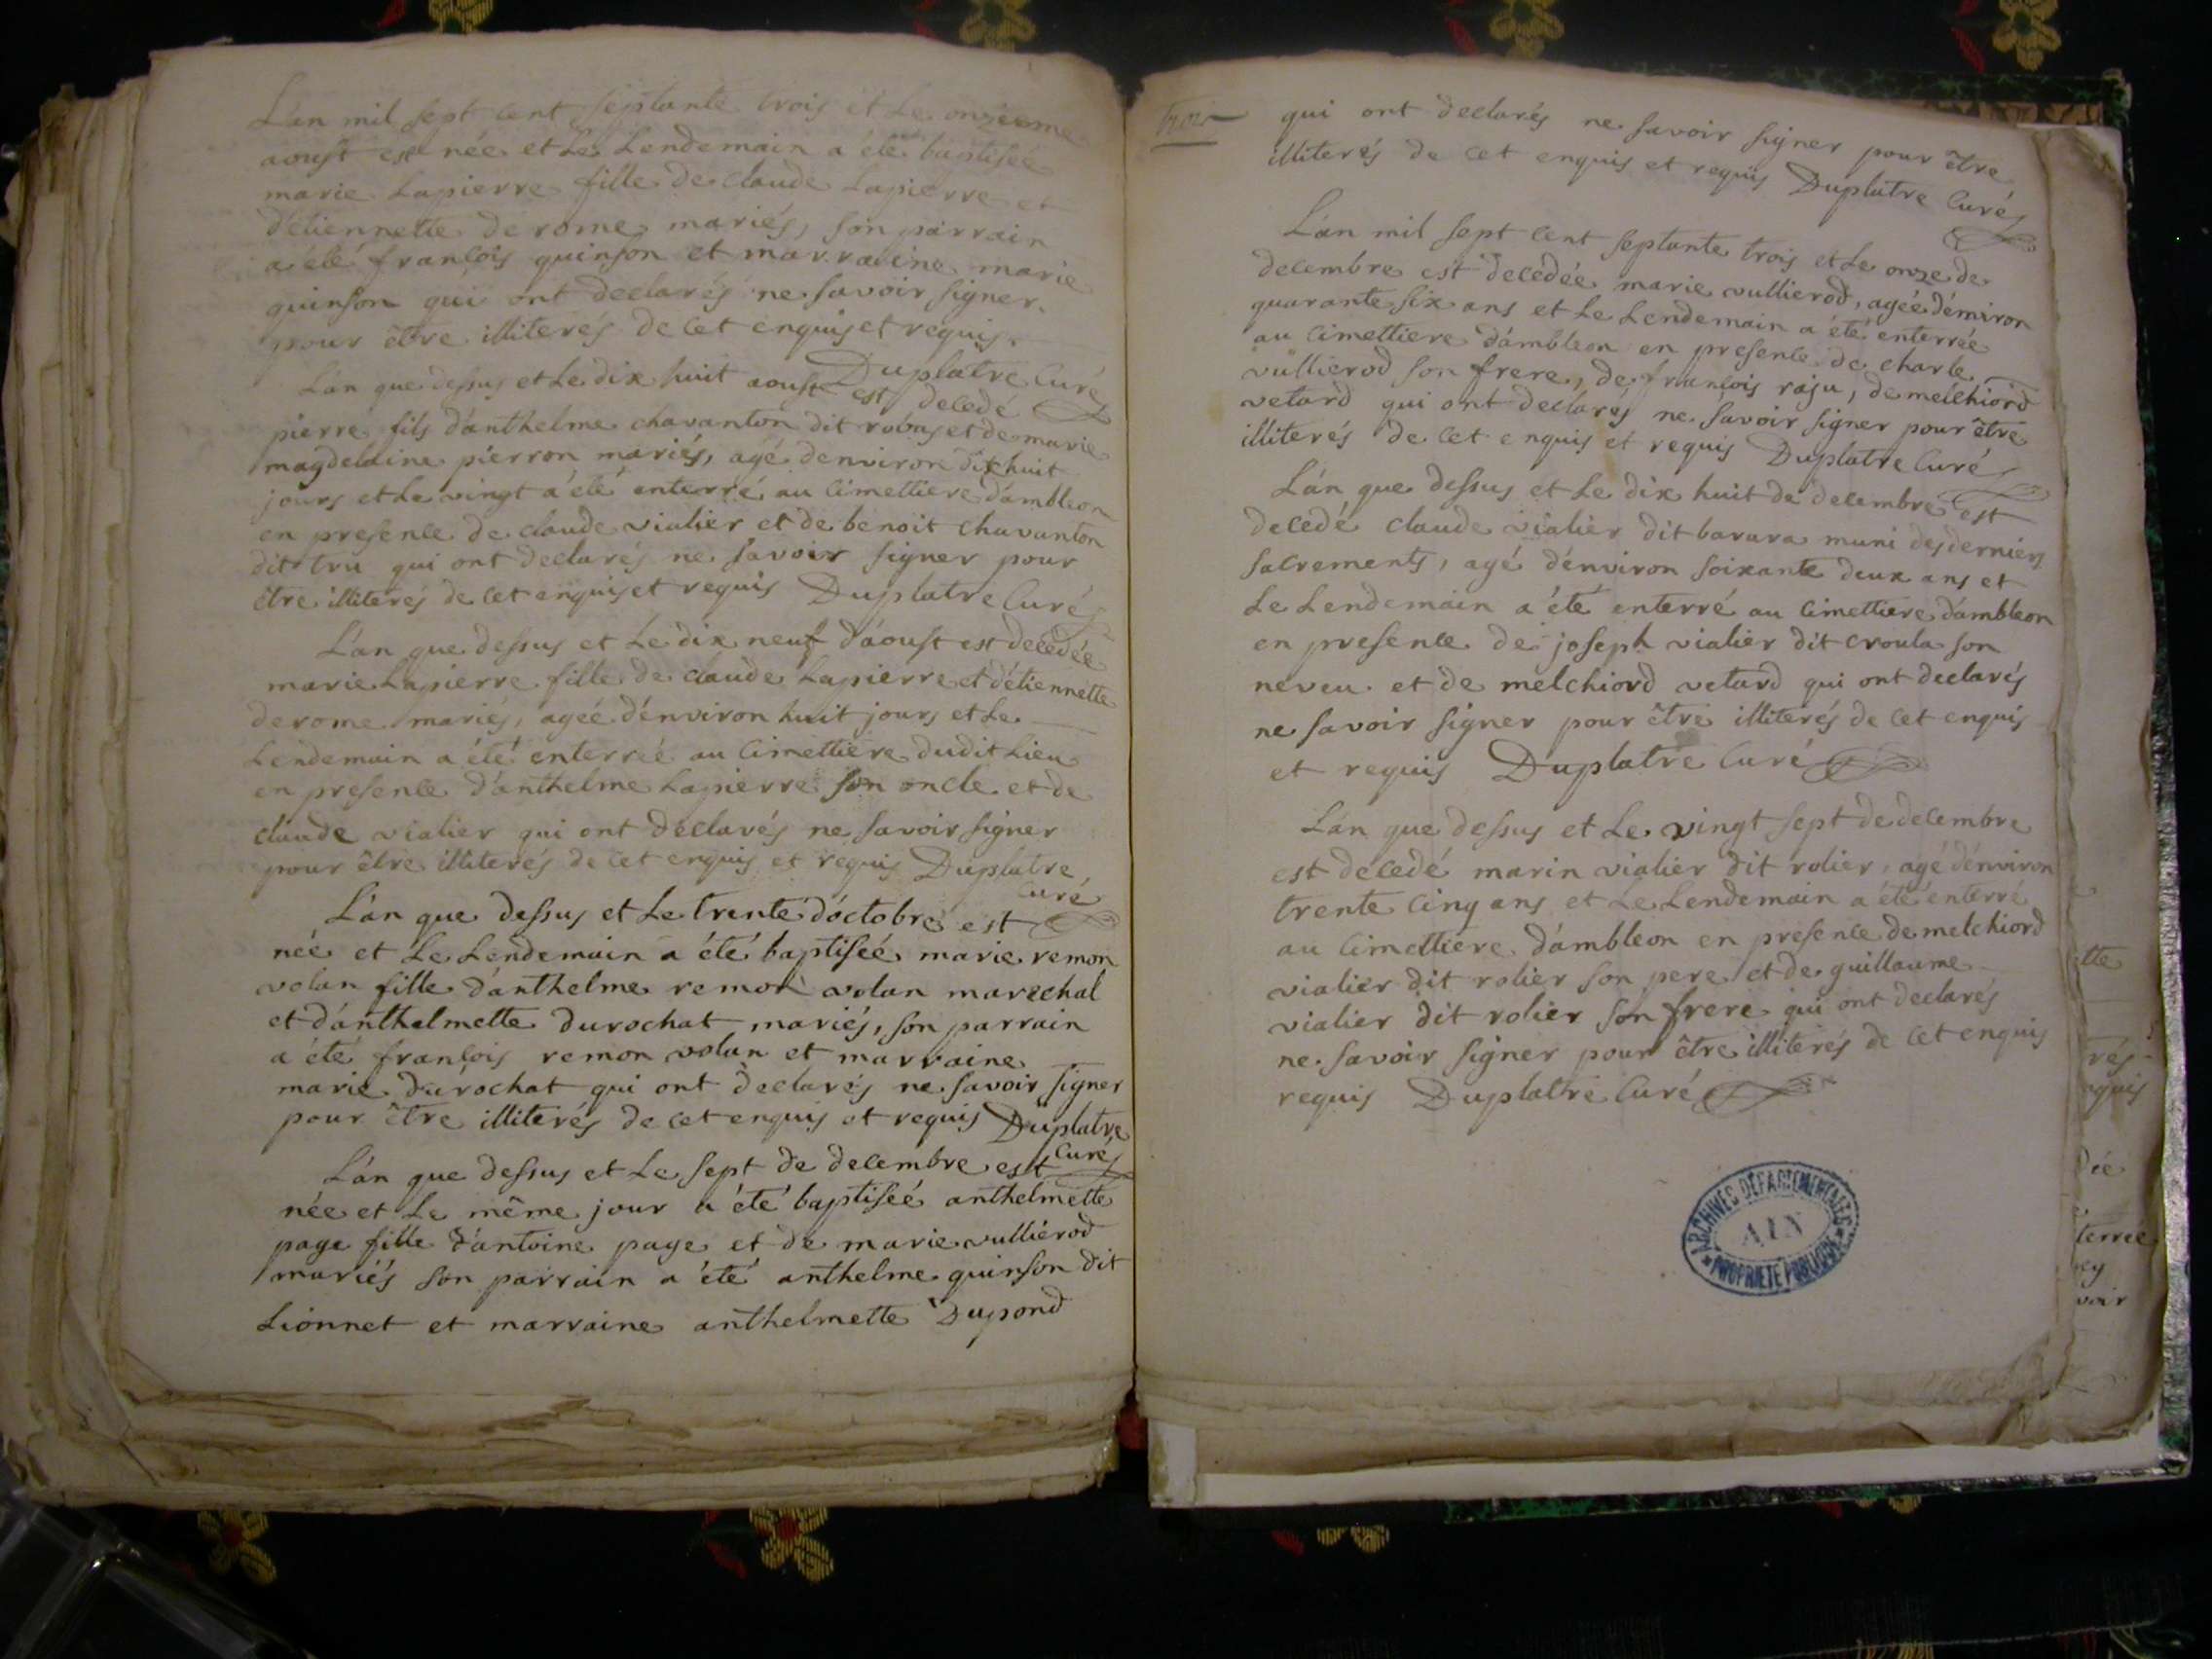 L'an mil sept cent septante trois et Le onzieme
aoust est née et Le Lendemain a été baptisée
marie Lapierre fille de claude Lapierre et
d'etiennette derome mariés, son parrain
a été françois quinson et marraine marie
quinson qui ont declarés ne savoir signer
pour être illiterés de cet enquis et requis.
Duplatre Curé
L'an que dessus et Le dix huit aoust est decedé
pierre fils d'anthelme chavanton dit robas et de marie
magdelaine pierron mariés, agé denviron dix huit
jours et Le vingt a été enterré au Cimettiere d'ambleon
en presence de claude vialier et de benoit chavanton
dit tru qui ont declarés ne savoir signer pour
être illiterés de cet enquis et requis Duplatre Curé
L'an que dessus et Le dix neuf d'aoust est decedée
marie Lapierre fille de claude Lapierre et d'etiennette
derome mariés, ageé d'environ huit jours et Le
Lendemain a été enterreé au Cimettiere dudit Lieu
en presence d'anthelme Lapierre son oncle et de
claude vialier qui ont declarés ne savoir signer
pour être illiterés de cet enquis et requis Duplatre
Curé
L'an que dessus et Le trente d'octobre est
née et Le Lendemain a été baptiseé marie remon
volan fille d'anthelme remon volan marechal
et d'anthelmette durochat mariés, son parrain
a été françois remon volan et marraine
marie durochat qui ont declarés ne savoir signer
pour être illiterés de cet enquis et requis Duplatre
Curé
L'an que dessus et Le sept de decembre est
née et Le même jour a été baptiseé anthelmette
page fille d'antoine page et de marie vullierod
mariés son parrain a été anthelme quinson dit
Lionnet et marraine anthelmette Dupond
trois
qui ont declarés ne savoir signer pour être
illiterés de cet enquis et requis Duplatre Curé
L'an mil sept cent septante trois et Le onze de
decembre est decedée marie vullierod, ageé d'environ
quarante six ans et Le Lendemain a été enterrée
au Cimettiere d'ambleon en presence de charle
vullierod son frere, de françois raju, de melchiord
vetard qui ont declarés ne savoir signer pour être
illiterés de cet enquis et requis Duplatre Curé
L'an que dessus et Le dix huit de decembre est
decedé claude vialier dit barara muni des derniers
sacrements, agé d'environ soixante deux ans et
Le Lendemain a été enterré au Cimettiere d'ambleon
en presence de joseph vialier dit croula son
neveu et de melchiord vetard qui ont declarés
ne savoir signer pour être illiterés de cet enquis
et requis Duplatre Curé
L'an que dessus et Le vingt sept de decembre
est decedé marin vialier dit rolier, agé d'environ
trente Cinq ans et Le Lendemain a été enterré
au Cimettiere d'ambleon en presence de melchiord
vialier dit rolier son pere et de guillaume
vialier dit rolier son frere qui ont declarés
ne savoir signer pour être illiterés de cet enquis
requis Duplatre Curé
ARCHIVES DÉPARTEMENTALES
AIN
PROPRIÉTÉ PUBLIQUE